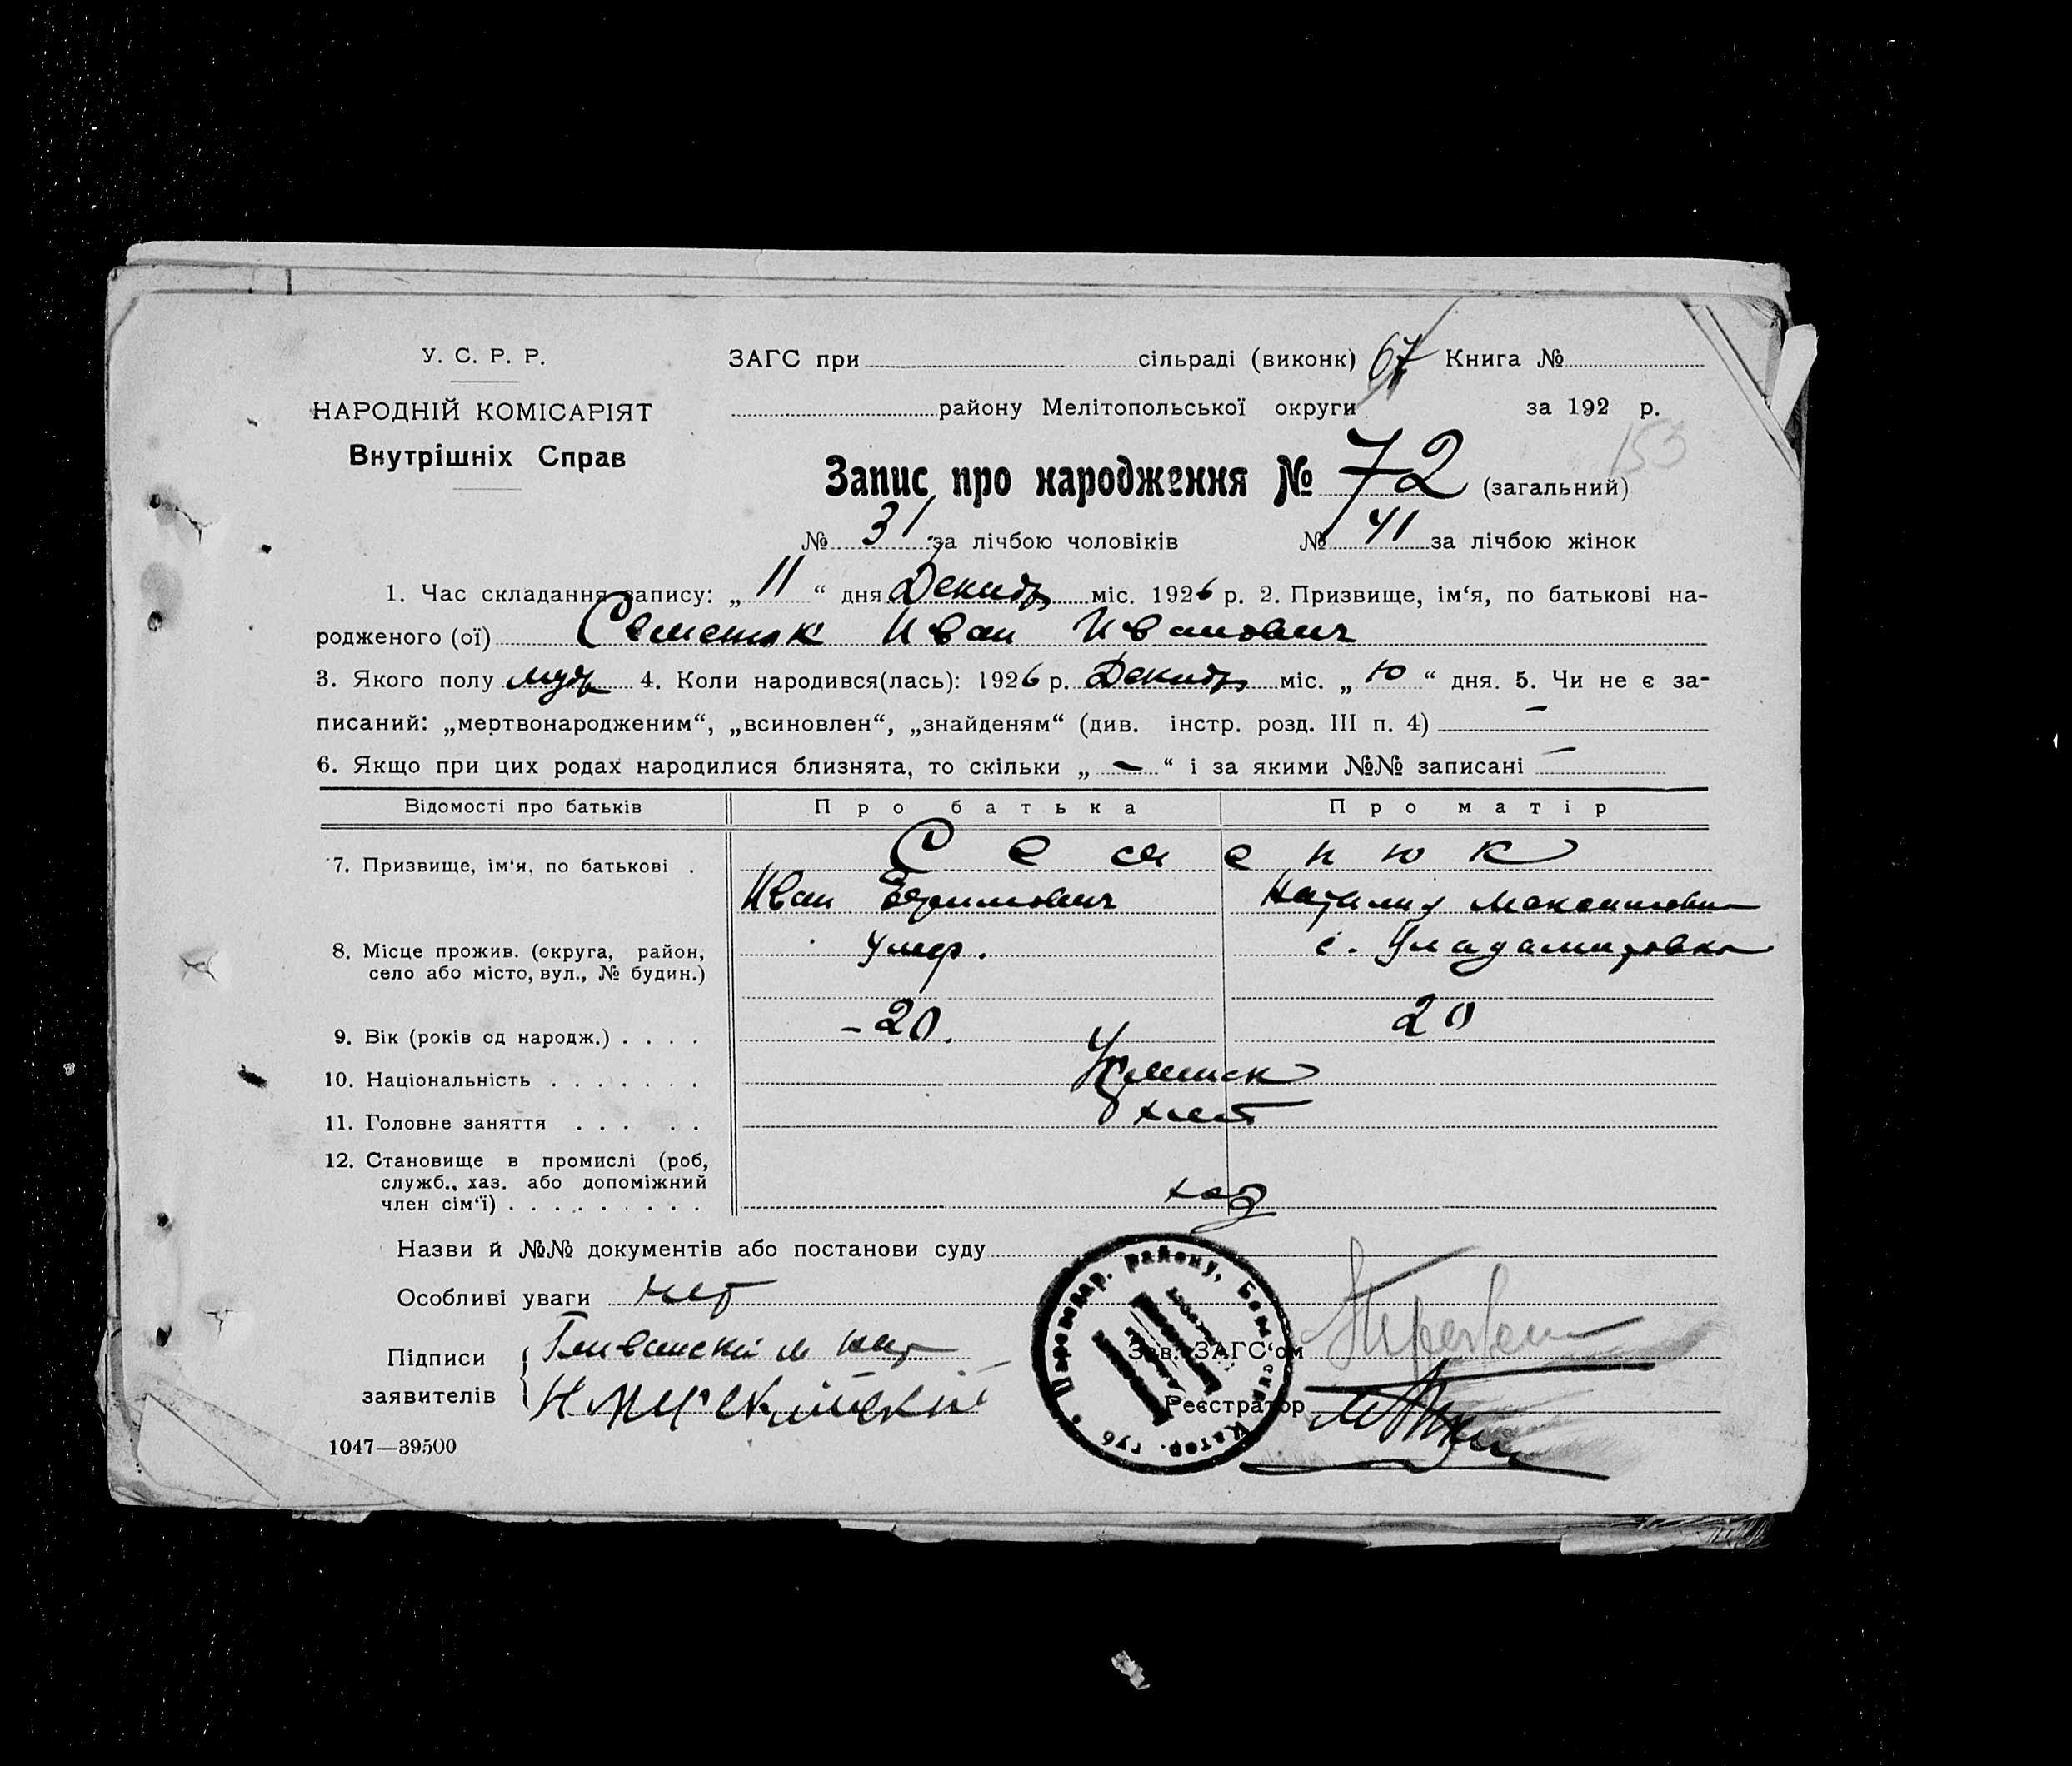 У. С. Р. Р.
НАРОДНІЙ КОМІСАРІЯТ
Внутрішніх Справ
ЗАГС при сільраді (виконк) 67 Книга №
району Мелітопольської округи за 192 р.
153
Запис про народження № 72 (загальний)
№ 31 за лічбою чоловіків № 41 за лічбою жінок
1. Час складання запису: „ 11 “ дня Декабр міс. 1926 р. 2. Призвище, ім‘я, по батькові на-
родженого (ої) Семенюк Иван Иванович
3. Якого полу муж 4. Коли народився(лась): 1926 р. Декабр міс. „ 10 “ дня. 5. Чи не є за-
писаний: „мертвонародженим“, „всиновлен“, „знайденям“ (див. інстр. розд. III п. 4) —
6. Якщо при цих родах народилися близнята, то скільки „ — “ і за якими №№ записані —
Відомості про батьків Про батька Про матір
7. Призвище, ім‘я, по батькові . Семенюк
Иван Ефимович Наталия Максимовна
8. Місце прожив. (округа, район,
село або місто, вул., № будин.)
умер. с.
9. Вік (років од народж.) . . . . -20. 20
10. Національність . . . . . . .
11. Головне заняття . . . . .
12. Становище в промислі (роб,
служб., хаз. або допоміжний
член сім‘ї) . . . . . . . . . хаз
Назви й №№ документів або постанови суду
Особливі уваги нет
Підписи
заявителів
Зав. ЗАГС‘ом
Реєстратор
району,
Катер. губ
1047—39500